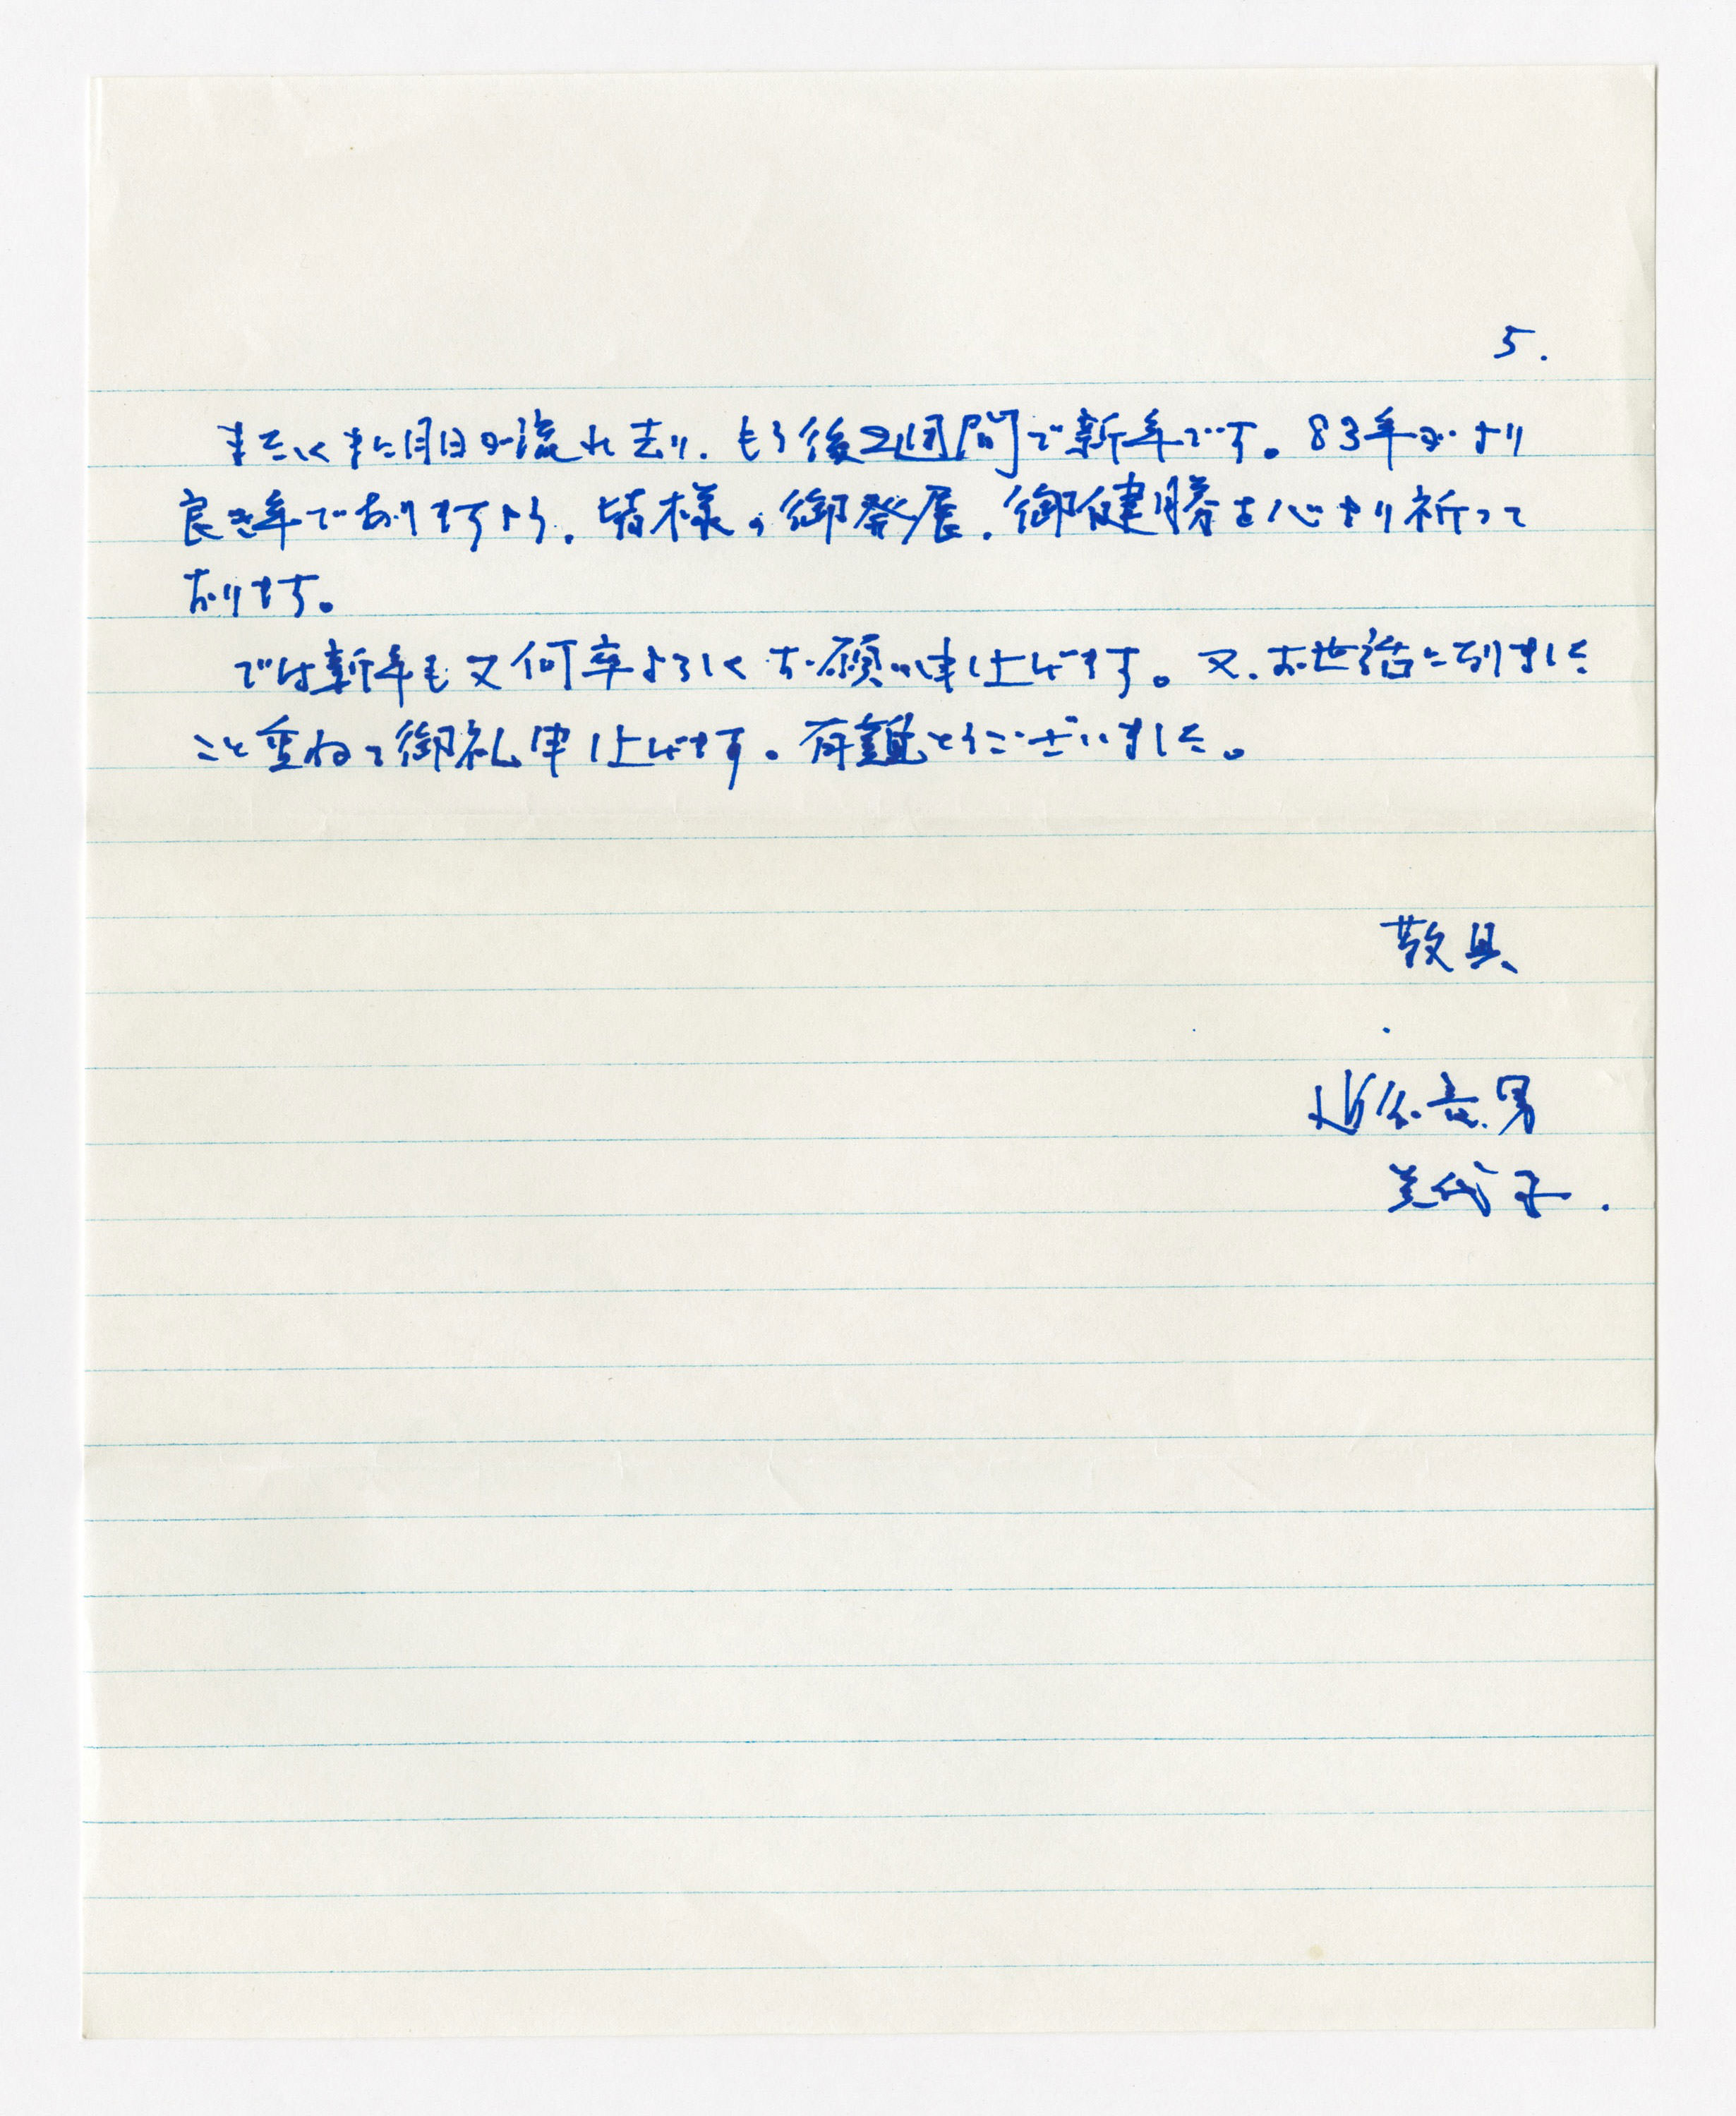 5.
またゝくまに月日が流れ去り、もう後2週間で新年です。83年がより
良き年でありますよう、皆様の御発展、御健勝を心より祈って
おります。
では新年も又何卒よろしくお願い申し上げます。又、お世話になりました
こと重ねて御礼申し上げます。有難とうございました。
敬具
男
美代子.